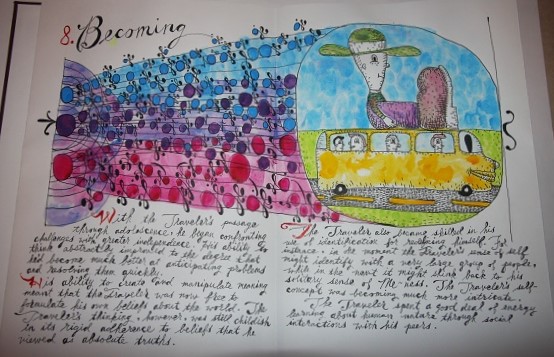 8. Becoming
With the Traveler's passage
through adolescence, he began confronting
challenges with greater independence. His ability to
think abstractly improved to the degree that
he'd become much better at anticipating problems
and resolving them quickly.
His ability to create and manipulate meaning
meant that the Traveler was now free to
formulate his own beliefs about the world. The
Traveler's thinking, however, was still childish
in its rigid adherence to beliefs that he
viewed as absolute truths.
The Traveler also became skilled in his
use of identification for redefining himself. For
instance, in one moment the Traveler's sense of self
might identify with a very large group of people,
while in the next it might shrink back to his
solitary sense of Me-ness. The Traveler's self-
concept was becoming much more intricate.
The Traveler spent a good deal of energy
learning about human nature through social
interactions with his peers.